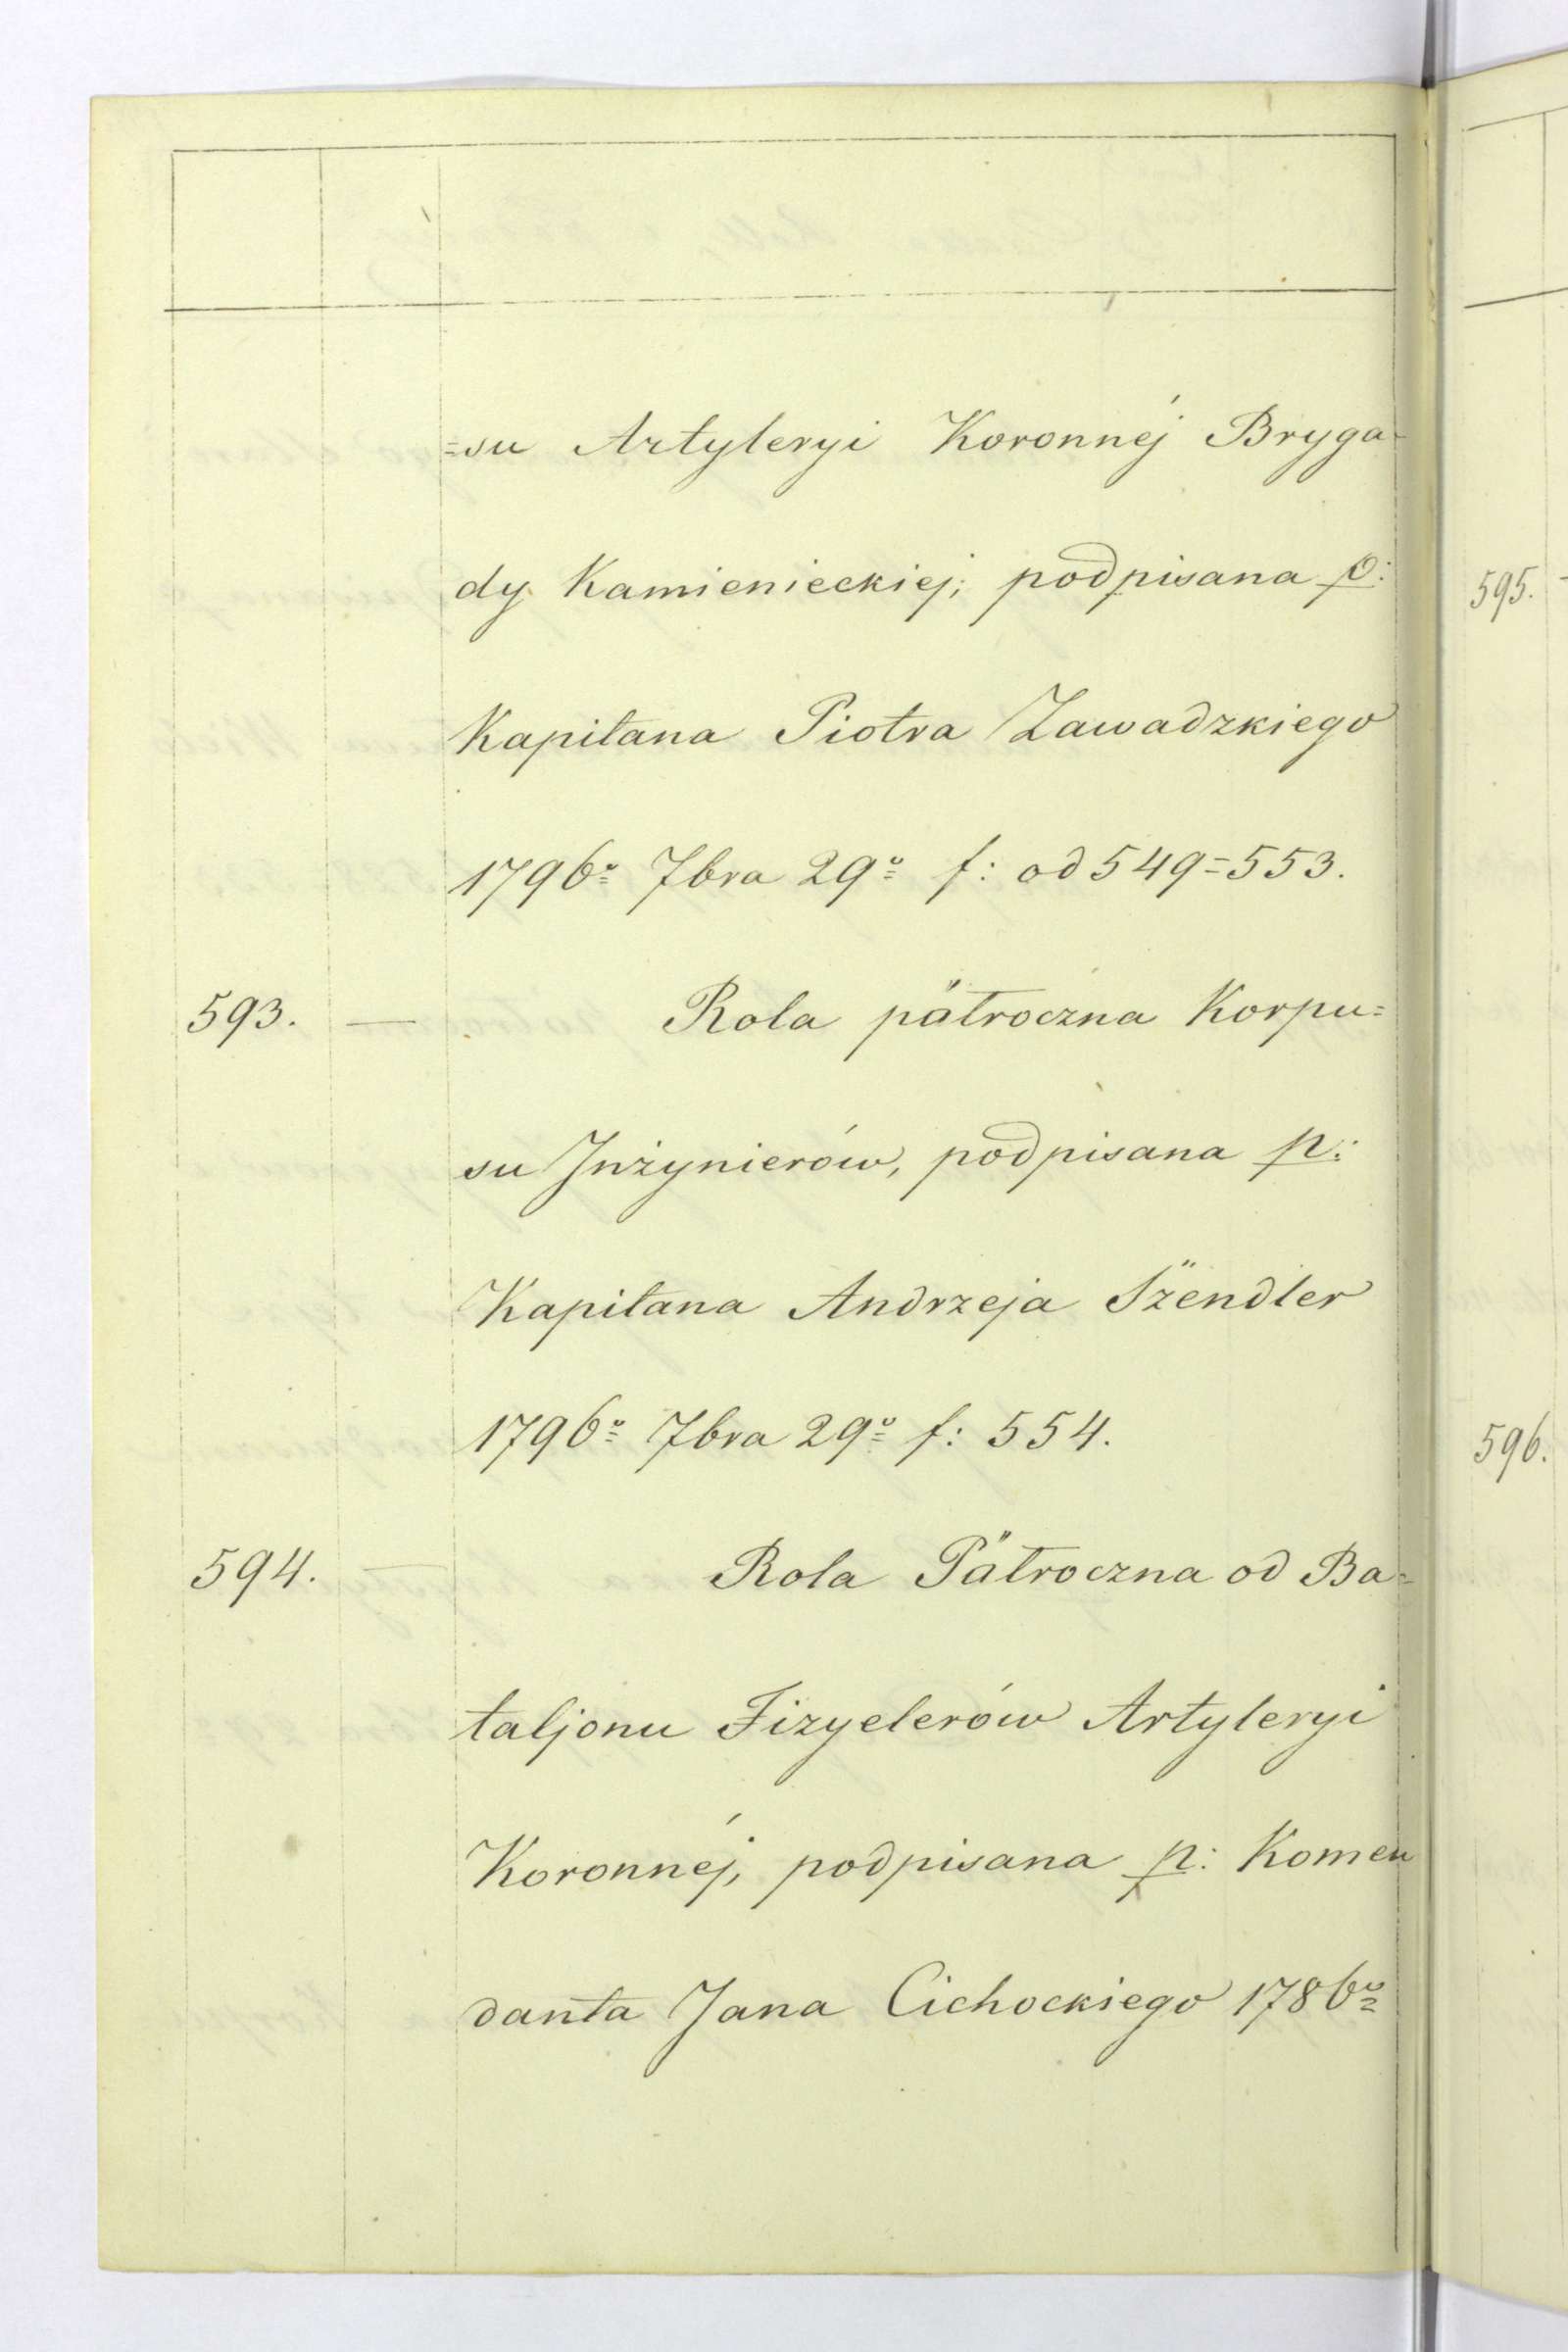 =su Artyleryi Koronnéj Bryga-
dy Kamienieckiej; podpisana p:
Kapitana Piotra Zawadzkiego
1796º 7bra 29º f: od 549=553.
593. — Rola pätroczna Korpu=
su Jnżynierów, podpisana p:
Kapitana Andrzeja Szëndler
1796º 7bra 29º f: 554.
594. — Rola Pätroczna od Ba=
taljonu Fizyelerów Artyleryi
Koronnéj, podpisana p: Komen
danta Jana Cichockiego 1786º
595.
596.